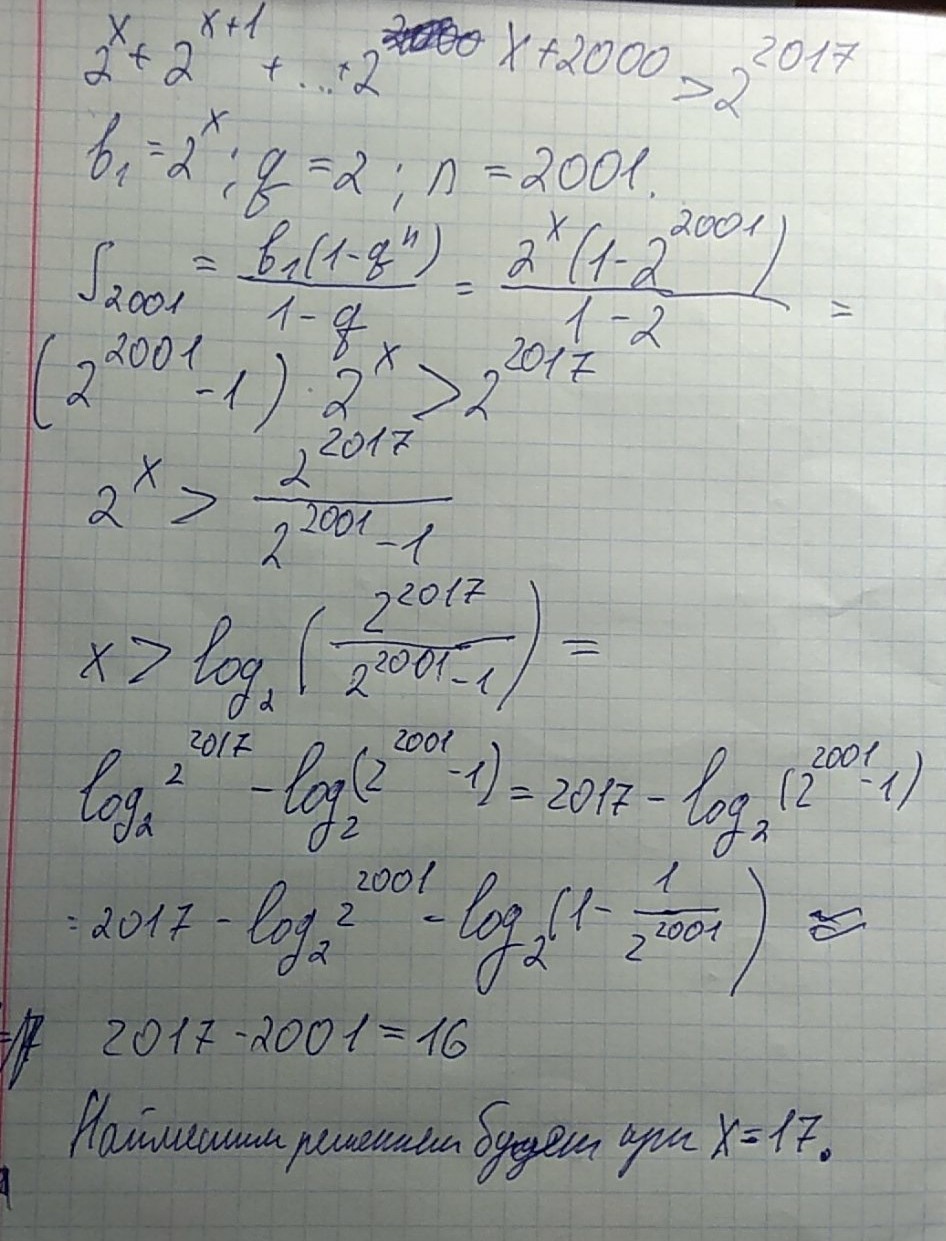 2^x + 2^{x+1} + ... + 2^{x+2000} > 2^{2017}
b_1 = 2^x ; q = 2 ; n = 2001.
S_{2001} = \frac{b_1(1-q^n)}{1-q} = \frac{2^x(1-2^{2001})}{1-2} =
(2^{2001} - 1) · 2^x > 2^{2017}
2^x > \frac{2^{2017}}{2^{2001} - 1}
x > log_2 (\frac{2^{2017}}{2^{2001} - 1}) =
log_2 2^{2017} - log_2 (2^{2001} - 1) = 2017 - log_2 (2^{2001} - 1)
= 2017 - log_2 2^{2001} - log_2 (1 - \frac{1}{2^{2001}}) ≈
2017 - 2001 = 16
Наименшим решением будет при x = 17.